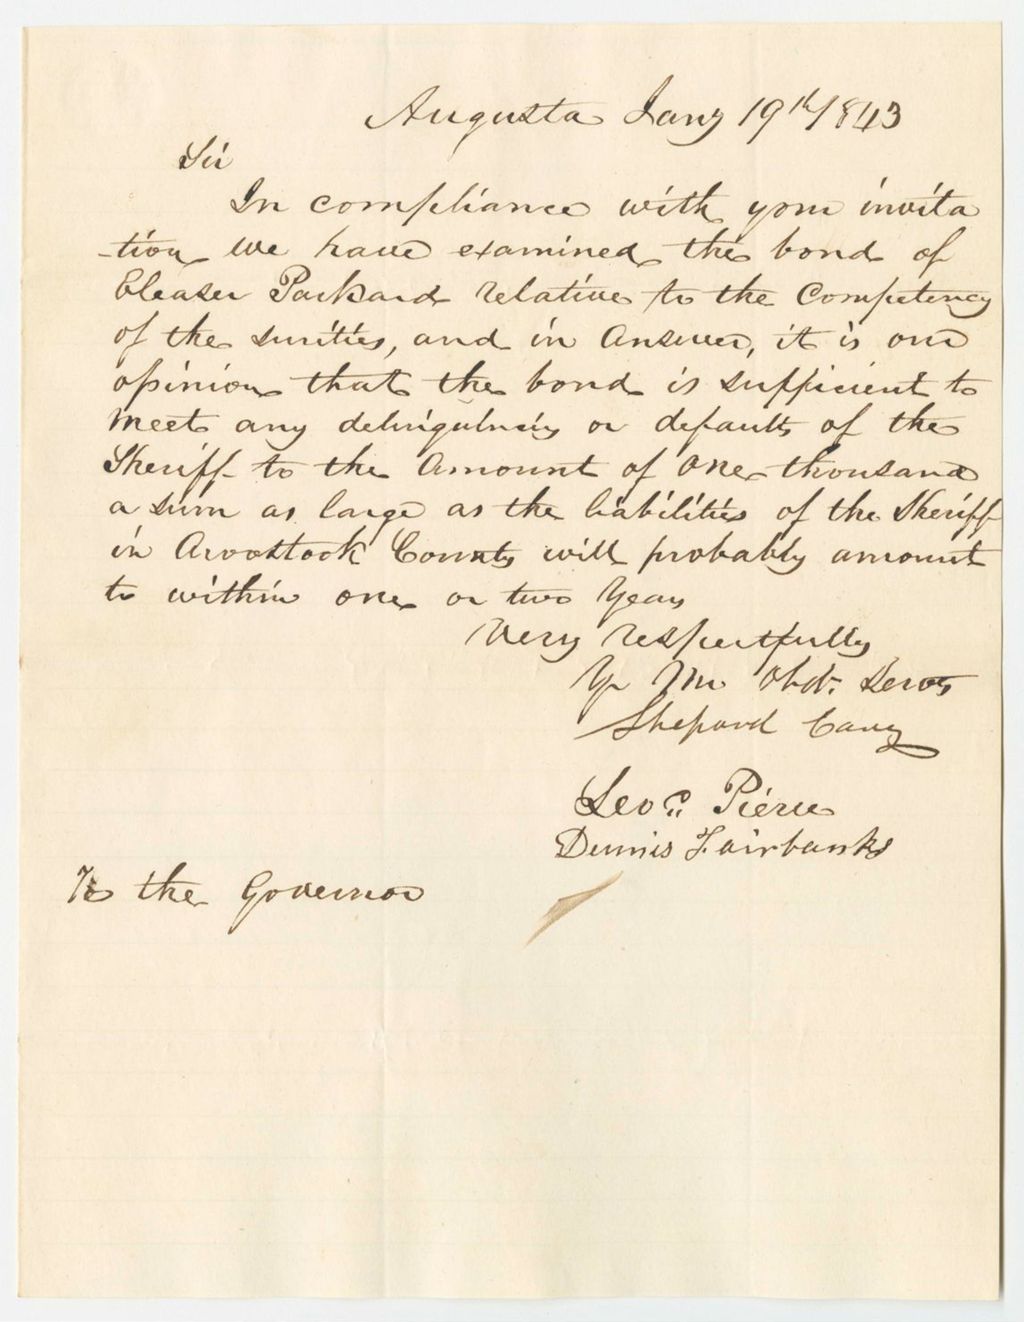 Augusta Jany 19th 1843
Sir
In compliance with your invita
-tion we have examined the bond of
Eleaser Packard relative to the Competency
of the surities, and in answer, it is our
opinion that the bond is sufficient to
meet any delinquincies or defaults of the
Sheriff to the amount of one thousand
a sum as large as the liabilities of the Sheriff
in Aroostook County will probably amount
to within one or two years
Very respectfully
Yr Mo Obdt. Servts
Shepard Cary
Leod. Pierce
Dennis Fairbanks
To the Governor